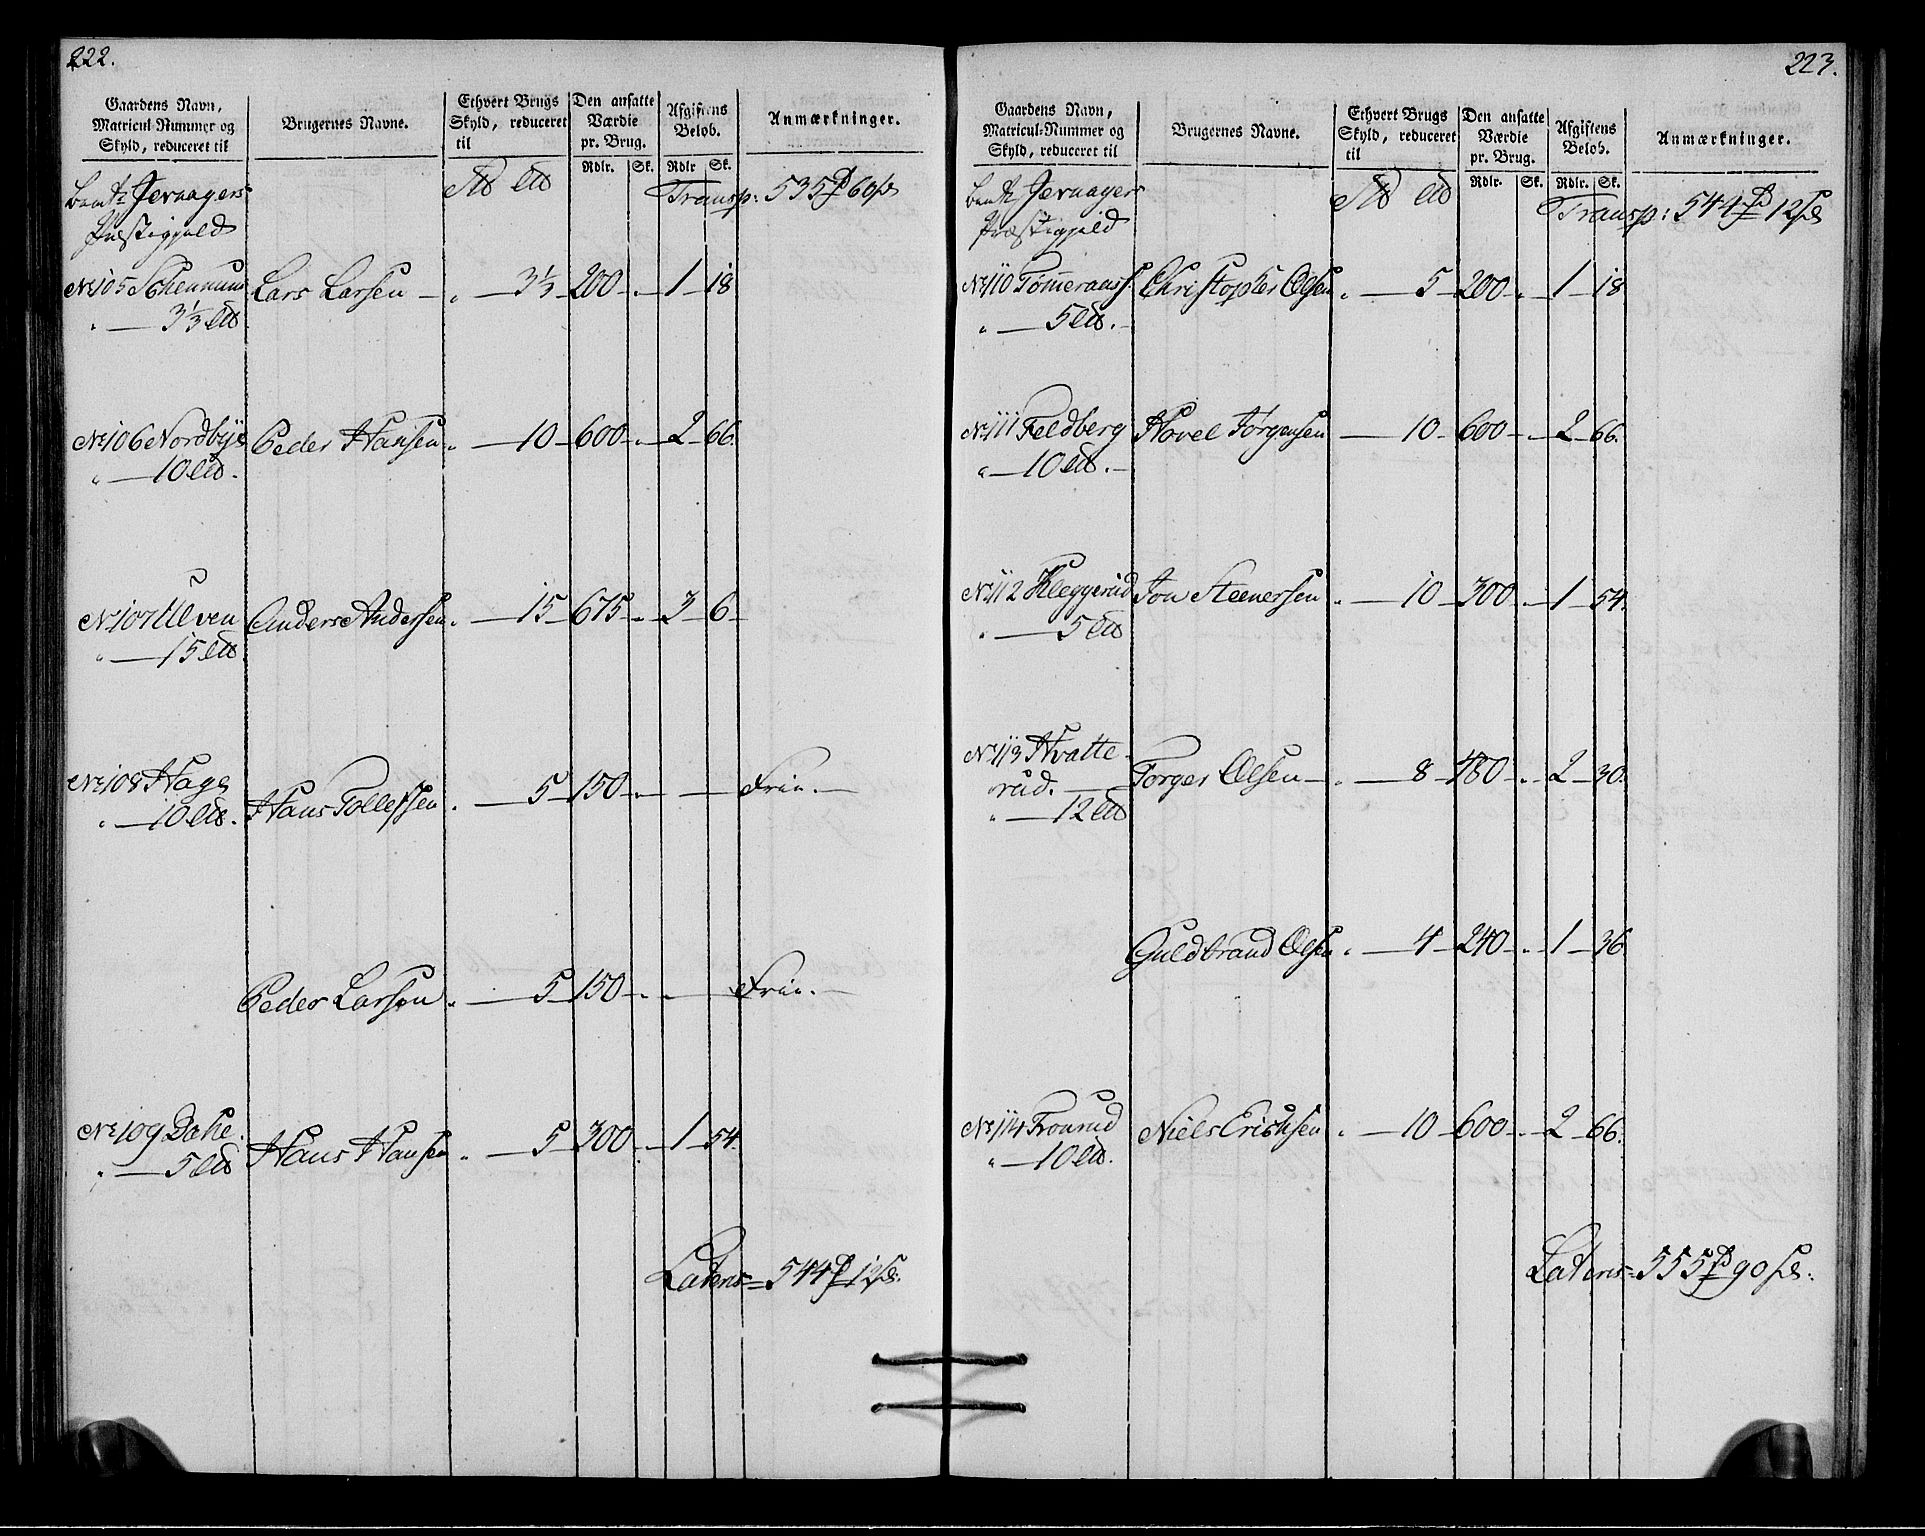 222.
Gaardens Navn,
Matricul-Nummer og
Skyld, reduceret til
Brugernes Navne.
Ethvert Brugs
Skyld, reduceret
til
Den ansatte
Værdie
pr. Brug.
Rdlr. Sk.
Afgiftens
Beløb.
Rdlr Sk.
Anmærkninger.
Jevnagers
Præstigjeld
Transp: 535 60 s
No 105 Schennum Lars Larsen - " - 3⅓ - 200 - " - 1 - 18
" - 3⅓ Lb
No 106 Nordbye Peder Hansen " - 10 - 600 - " - 2 - 66.
" - 10 Lb.
No 107 Ulven Anders Andersen " - 15 - 675 - " - 3 - 6 -
" - 15 Lb
No 108 Hage Hans Tollefsen " - 5 - 150 - " - - Frie. -
" - 10 Lb.
Peder Larsen " - 5 - 150 - " - - Frie. -
No 109 Dahe. Hans Hansen " - 5 - 300 - " - 1 - 54.
" - 5 Lb
Latens = 544 12 s.
223.
Gaardens Navn,
Matricul-Nummer og
Skyld, reduceret til
Brugernes Navne.
Ethvert Brugs
Skyld, reduceret
til
Den ansatte
Værdie
pr. Brug.
Rdlr. Sk.
Afgiftens
Beløb.
Rdlr. Sk.
Anmærkninger.
Jevnager
Præstigjeld
Transp: 544 12 s
No 110 Tømeraas Christopher Olsen " - 5 - 200 - " - 1 - 18
" - 5 Lb. -
No 111 Feldberg Hovel Jørgensen - 10 - 600 - " - 2 - 66.
" - 10 Lb. -
No 112 Kleggerud Jon Steenersen " - 10 - 300 - " - 1 - 54.
" - 5 Lb
No 113 Hvatte-
rud. - Torger Olsen - " - 8 - 480 - " - 2 - 30.
" - 12 Lb
Guldbrand Olsen " - 4 - 240 - " - 1 - 36
No 114 Tronrud Niels Erichsen " - 10 - 600 - " - 2 - 66.
" - 10 Lb.
Latens = 555 90 s.